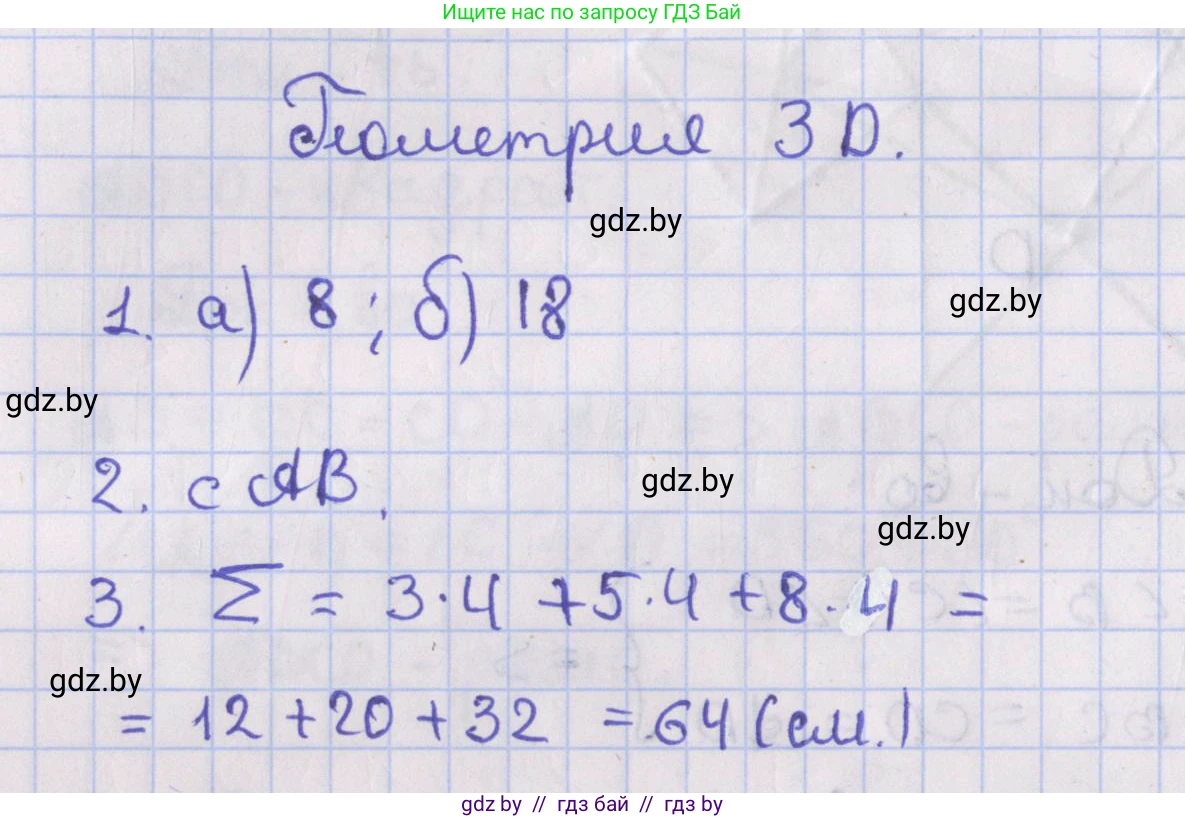 Ищите нас по запросу ГДЗ Бай
Геометрия 3D.
gdz.by
1. а) 8 ; б) 18
gdz.by
gdz.by
2. с АВ.
gdz.by
gdz.by
3. Σ = 3·4 +5·4 +8·4 =
gdz.by
= 12 +20 +32 = 64 (см.)
gdz.by // гдз бай // гдз by